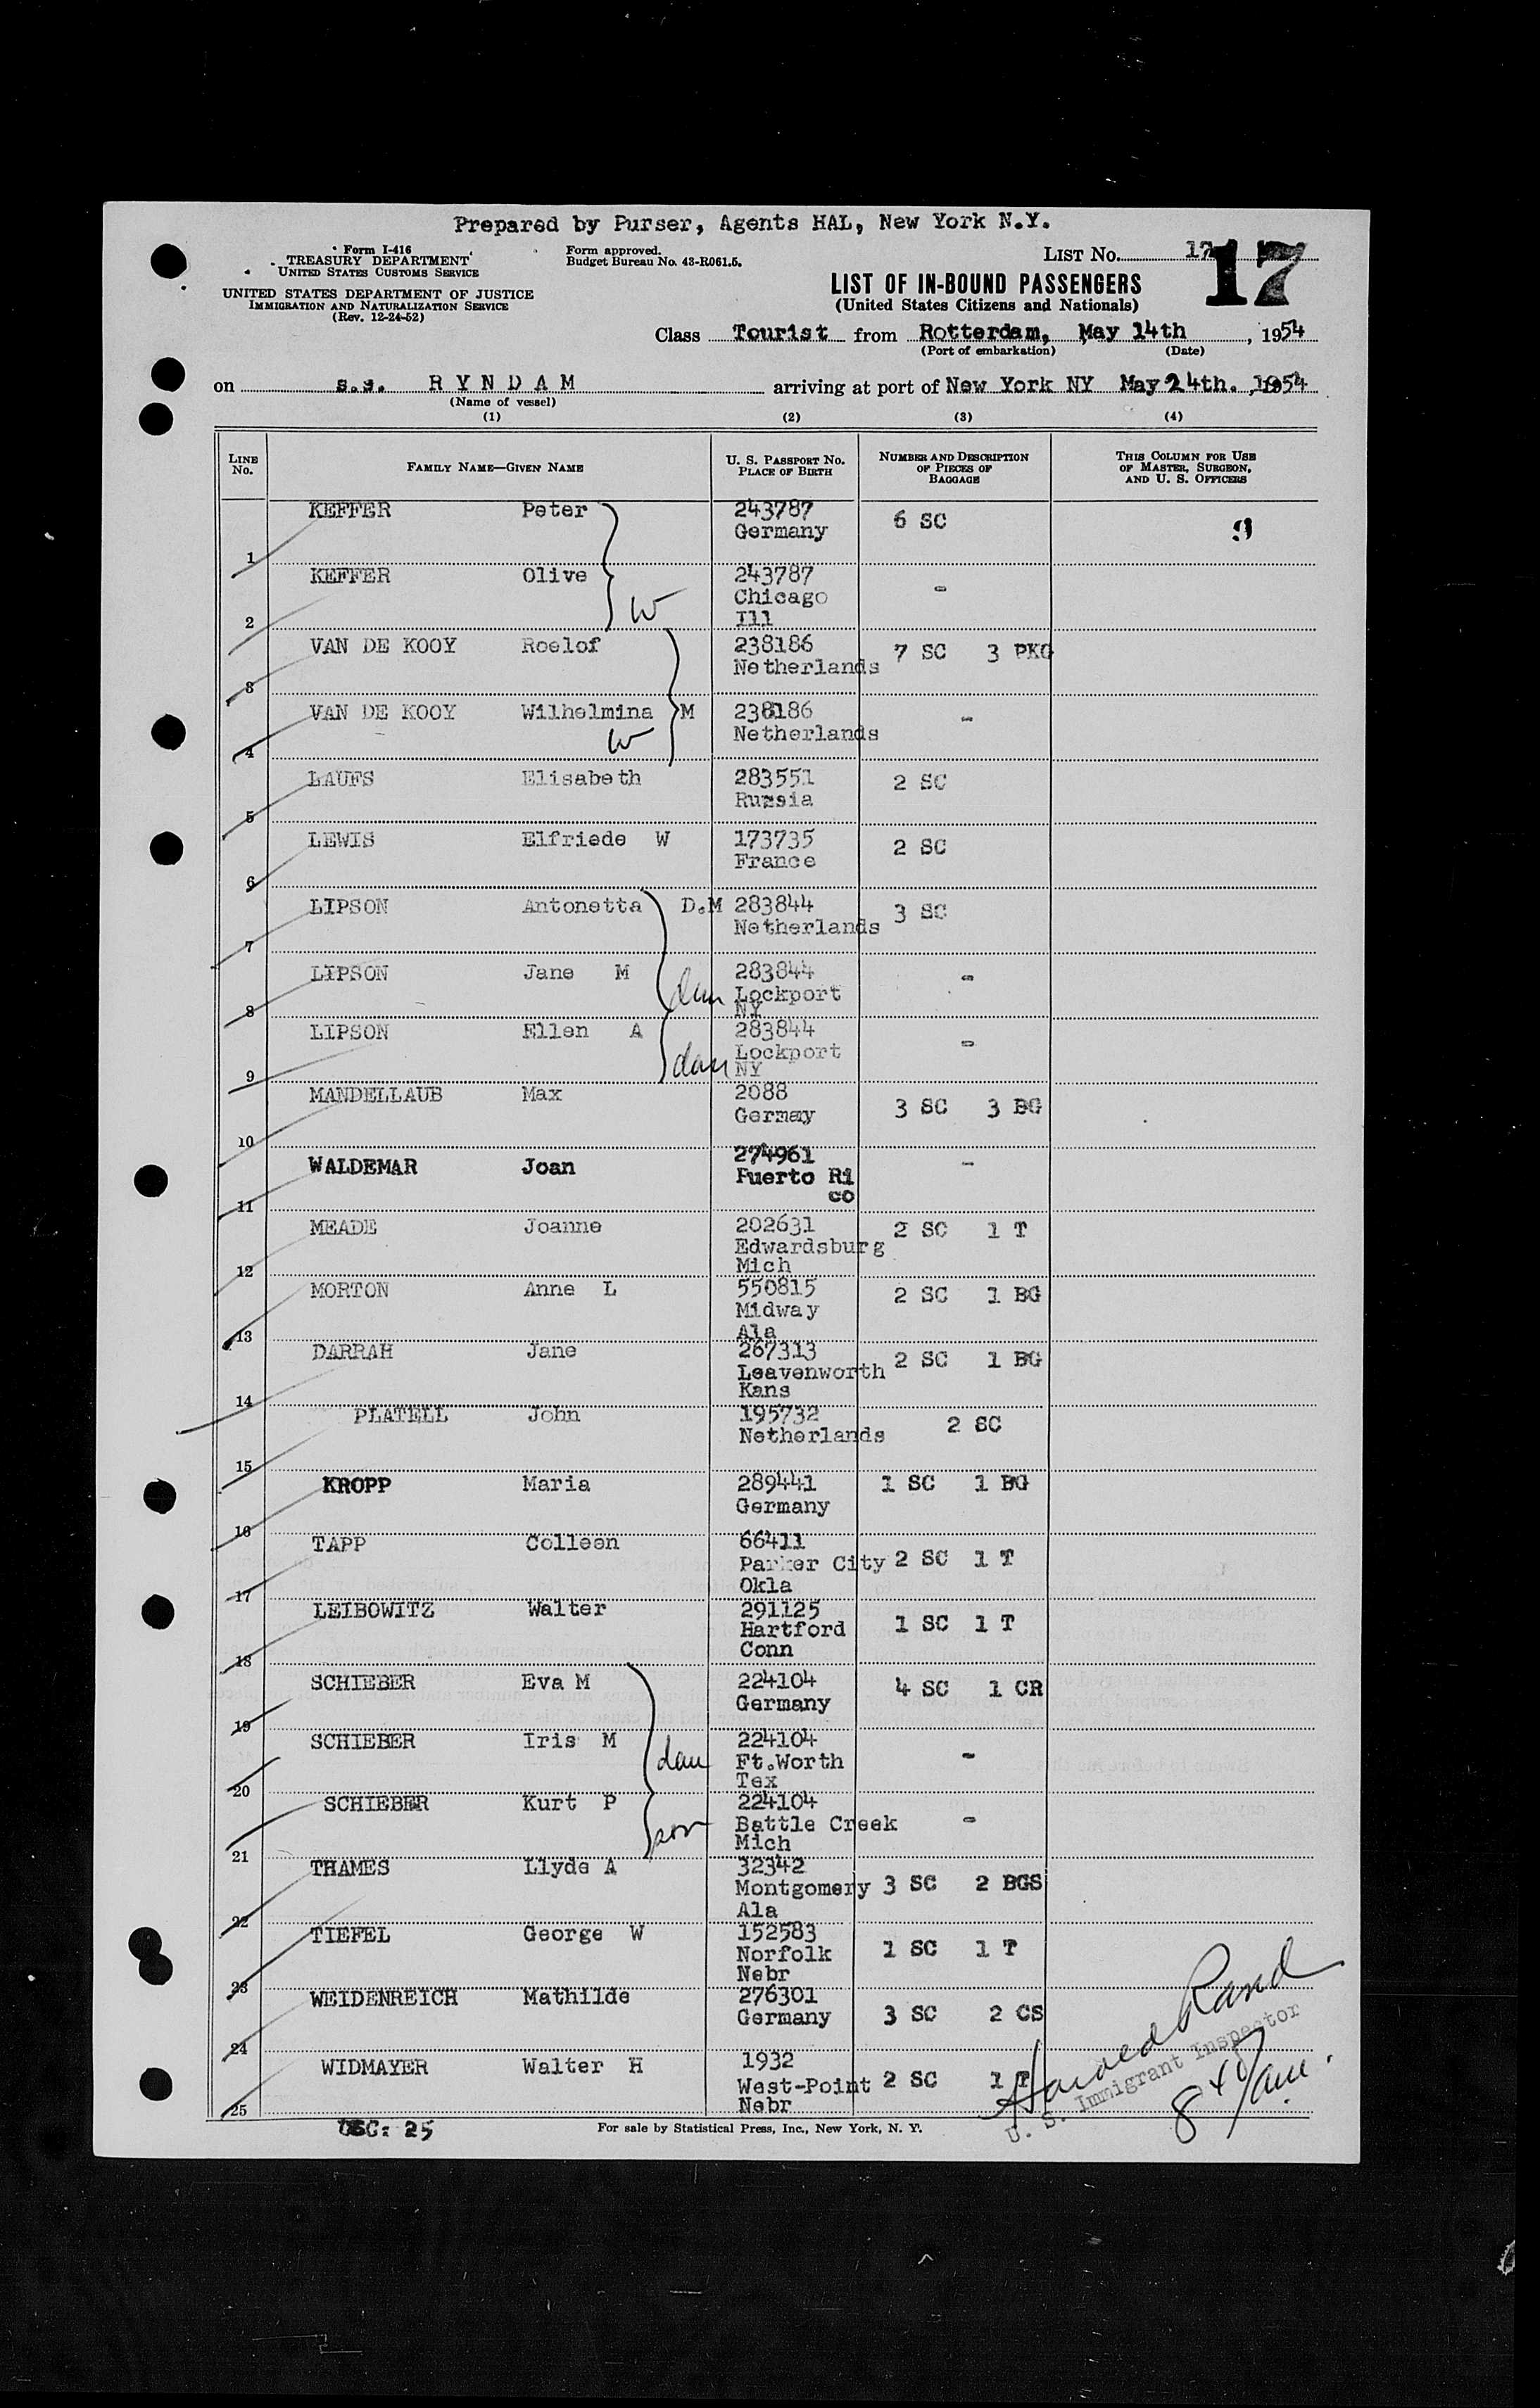 Prepared by Purser, Agents HAL, New York N.Y.
Form I-416
TREASURY DEPARTMENT
UNITED STATES CUSTOMS SERVICE
UNITED STATES DEPARTMENT OF JUSTICE
IMMIGRATION AND NATURALIZATION SERVICE
(Rev. 12-24-52)
Form approved.
Budget Bureau No. 43-R061.5.
LIST No. 17
17
LIST OF IN-BOUND PASSENGERS
(United States Citizens and Nationals)
Class Tourist from Rotterdam, May 14th, 1954
(Port of embarkation) (Date)
on s.s. RYNDAM arriving at port of New York NY May 24th., 1954
(Name of vessel)
(1) (2) (3) (4)
LINE No. FAMILY NAME—GIVEN NAME U. S. PASSPORT NO. PLACE OF BIRTH NUMBER AND DESCRIPTION OF PIECES OF BAGGAGE THIS COLUMN FOR USE OF MASTER, SURGEON, AND U. S. OFFICERS
KEFFER Peter 243787 6 SC 9
Germany
1
KEFFER Olive 243787 -
W Chicago
2 Ill
VAN DE KOOY Roelof 238186 7 SC 3 PKG
Netherlands
3
VAN DE KOOY Wilhelmina M 238186 -
W Netherlands
4
LAUFS Elisabeth 283551 2 SC
Russia
5
LEWIS Elfriede W 173735 2 SC
France
6
LIPSON Antonetta D.M 283844 3 SC
Netherlands
7
LIPSON Jane M 283844 -
dau Lockport
8 NY
LIPSON Ellen A 283844 -
dau Lockport
9 NY
MANDELLAUB Max 2088 3 SC 3 BG
Germay
10
WALDEMAR Joan 274961 -
Puerto Ri
11 co
MEADE Joanne 202631 2 SC 1 T
Edwardsburg
12 Mich
MORTON Anne L 550815 2 SC 1 BG
Midway
13 Ala
DARRAH Jane 267313 2 SC 1 BG
Leavenworth
14 Kans
PLATELL John 195732 2 SC
Netherlands
15
KROPP Maria 289441 1 SC 1 BG
Germany
16
TAPP Colleen 66411 2 SC 1 T
Parker City
17 Okla
LEIBOWITZ Walter 291125 1 SC 1 T
Hartford
18 Conn
SCHIEBER Eva M 224104 4 SC 1 CR
Germany
19
SCHIEBER Iris M 224104 -
dau Ft.Worth
20 Tex
SCHIEBER Kurt P 224104 -
son Battle Creek
21 Mich
THAMES Llyde A 32342 3 SC 2 BGS
Montgomery
22 Ala
TIEFEL George W 152583 1 SC 1 T
Norfolk
23 Nebr
WEIDENREICH Mathilde 276301 3 SC 2 CS
Germany
24
WIDMAYER Walter H 1932 2 SC 1 T
West-Point
25 Nebr
Rand
U. S. Immigrant Inspector
USC: 25
For sale by Statistical Press, Inc., New York, N. Y.